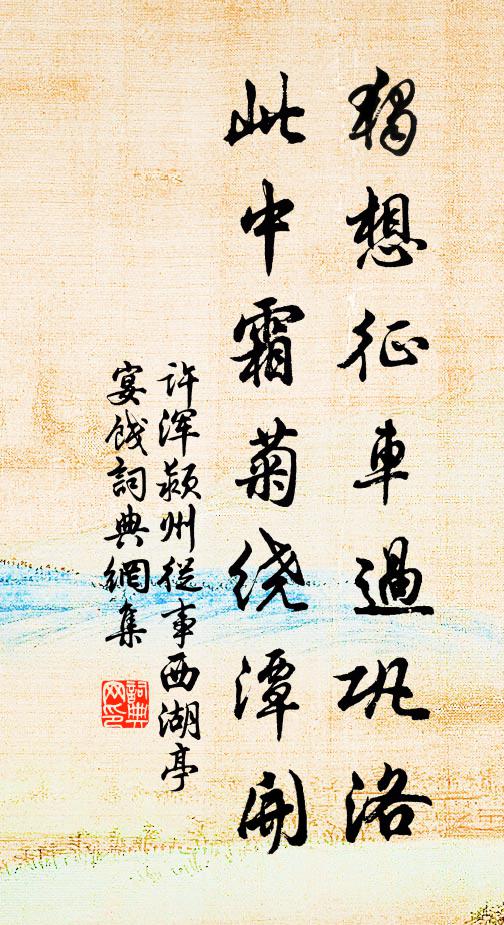 獨想征車過巩洛
此中霜菊绕潭開
许浑颍州從事西湖亭
宴餞詞典網集
詞典
网印